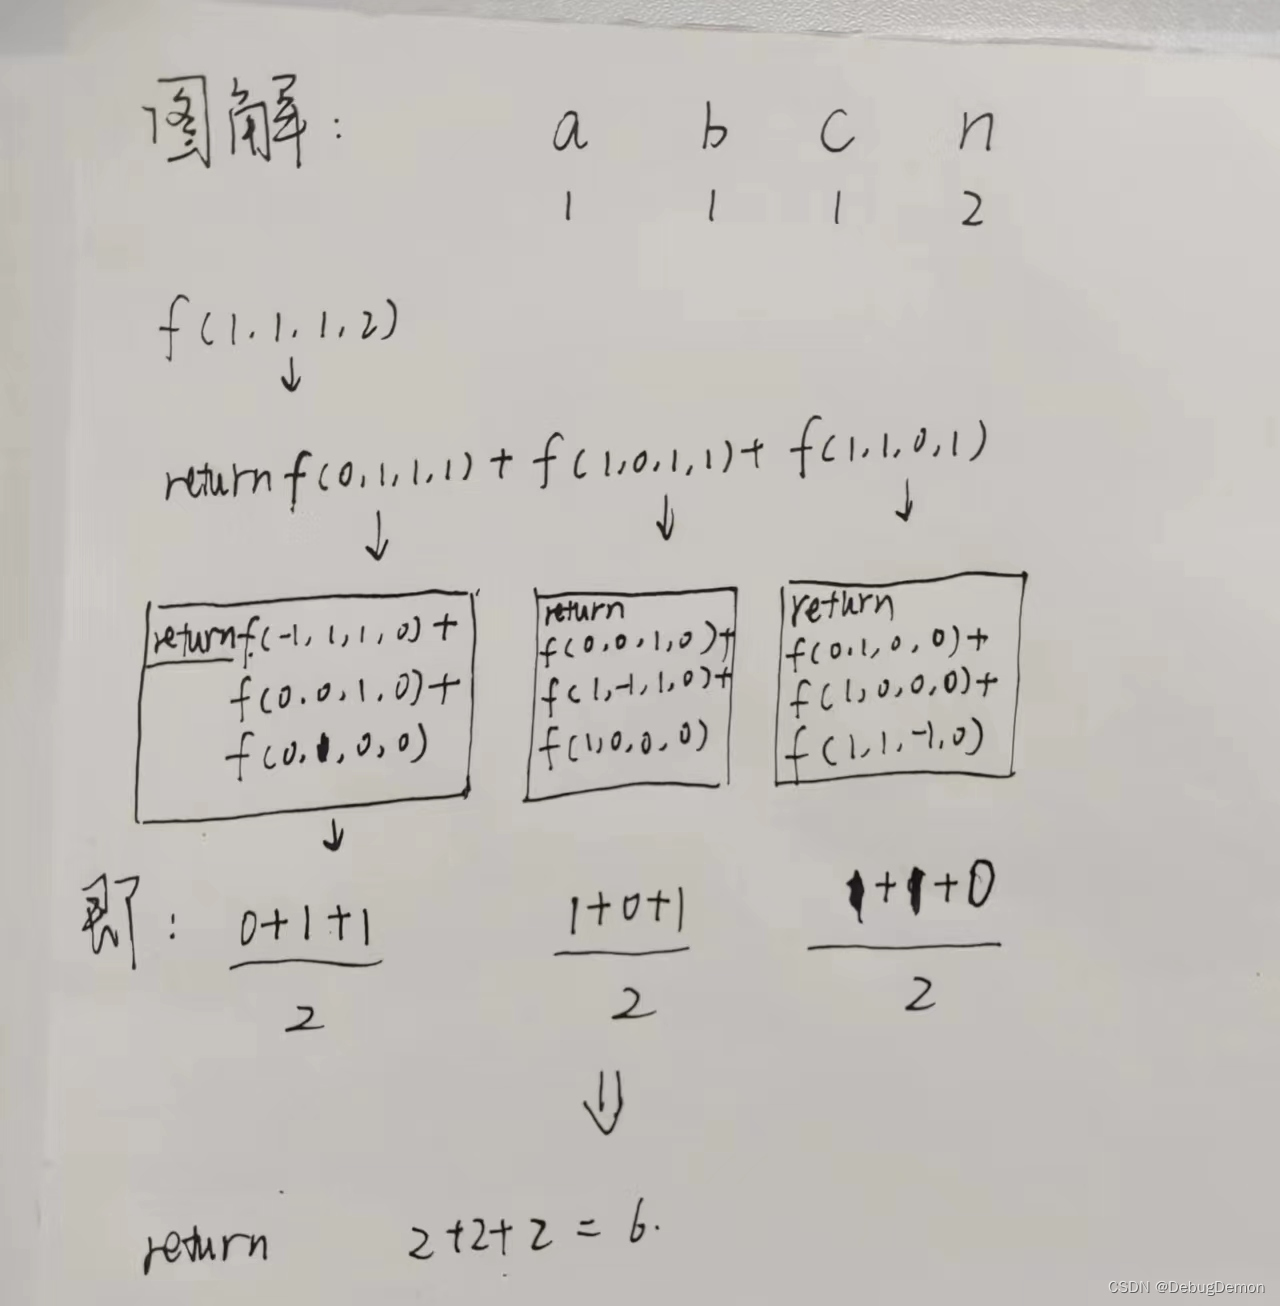 图解: a b c n
1 1 1 2
f(1.1.1,2)
↓
return f(0,1,1,1) + f(1,0,1,1) + f(1,1,0,1)
↓ ↓ ↓
return f(-1,1,1,0) +
f(0.0,1,0) +
f(0,1,0,0)
return
f(0,0,1,0)+
f(1,-1,1,0)+
f(1,0,0,0)
return
f(0,1,0,0)+
f(1,0,0,0)+
f(1,1,-1,0)
↓
即: 0+1+1 1+0+1 1+1+0
2 2 2
⇓
return 2+2+2 = 6.
CSDN @DebugDemon